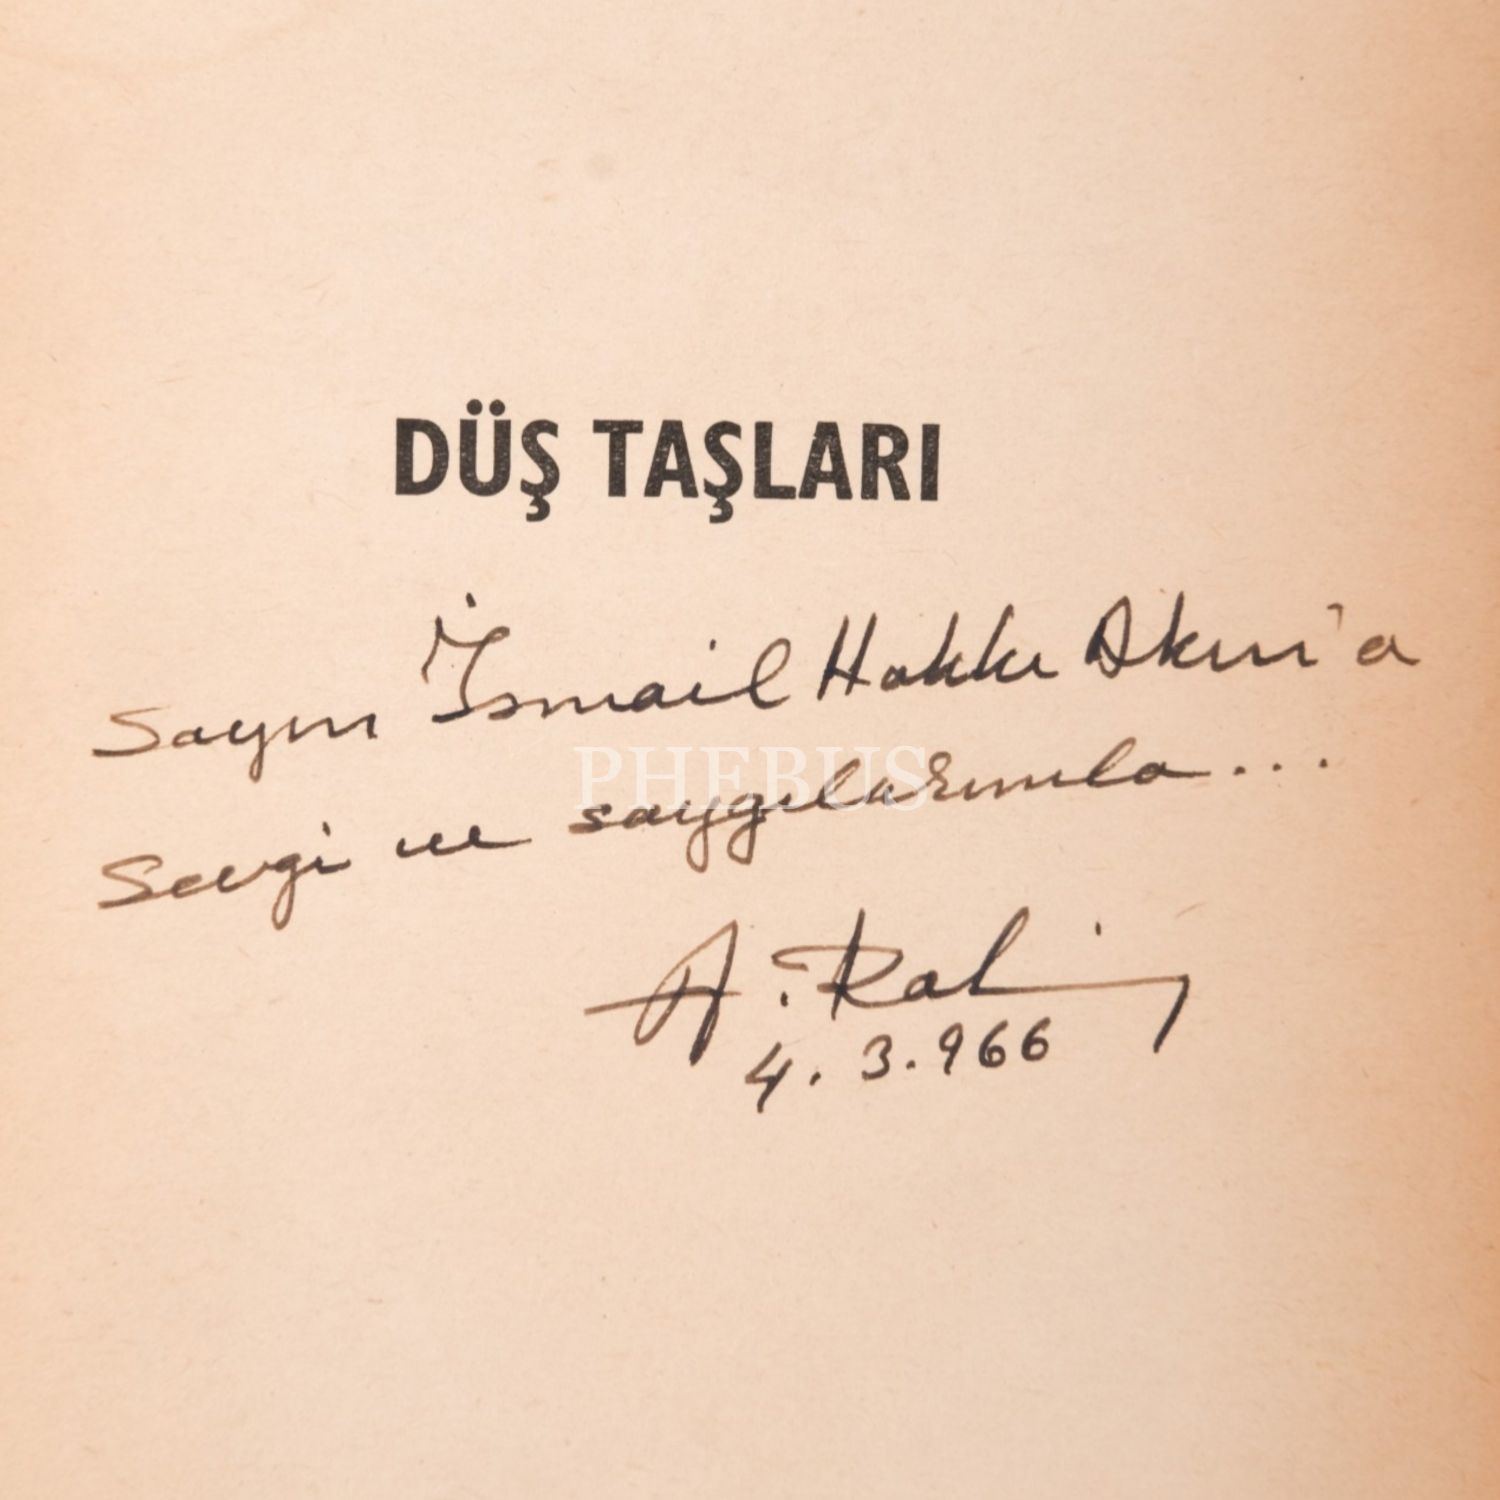 DÜŞ TAŞLARI
Sayın İsmail Hakkı Akın'a
PHEBUS
Sevgi ve saygılarımla...
A. Rahi
4.3.966